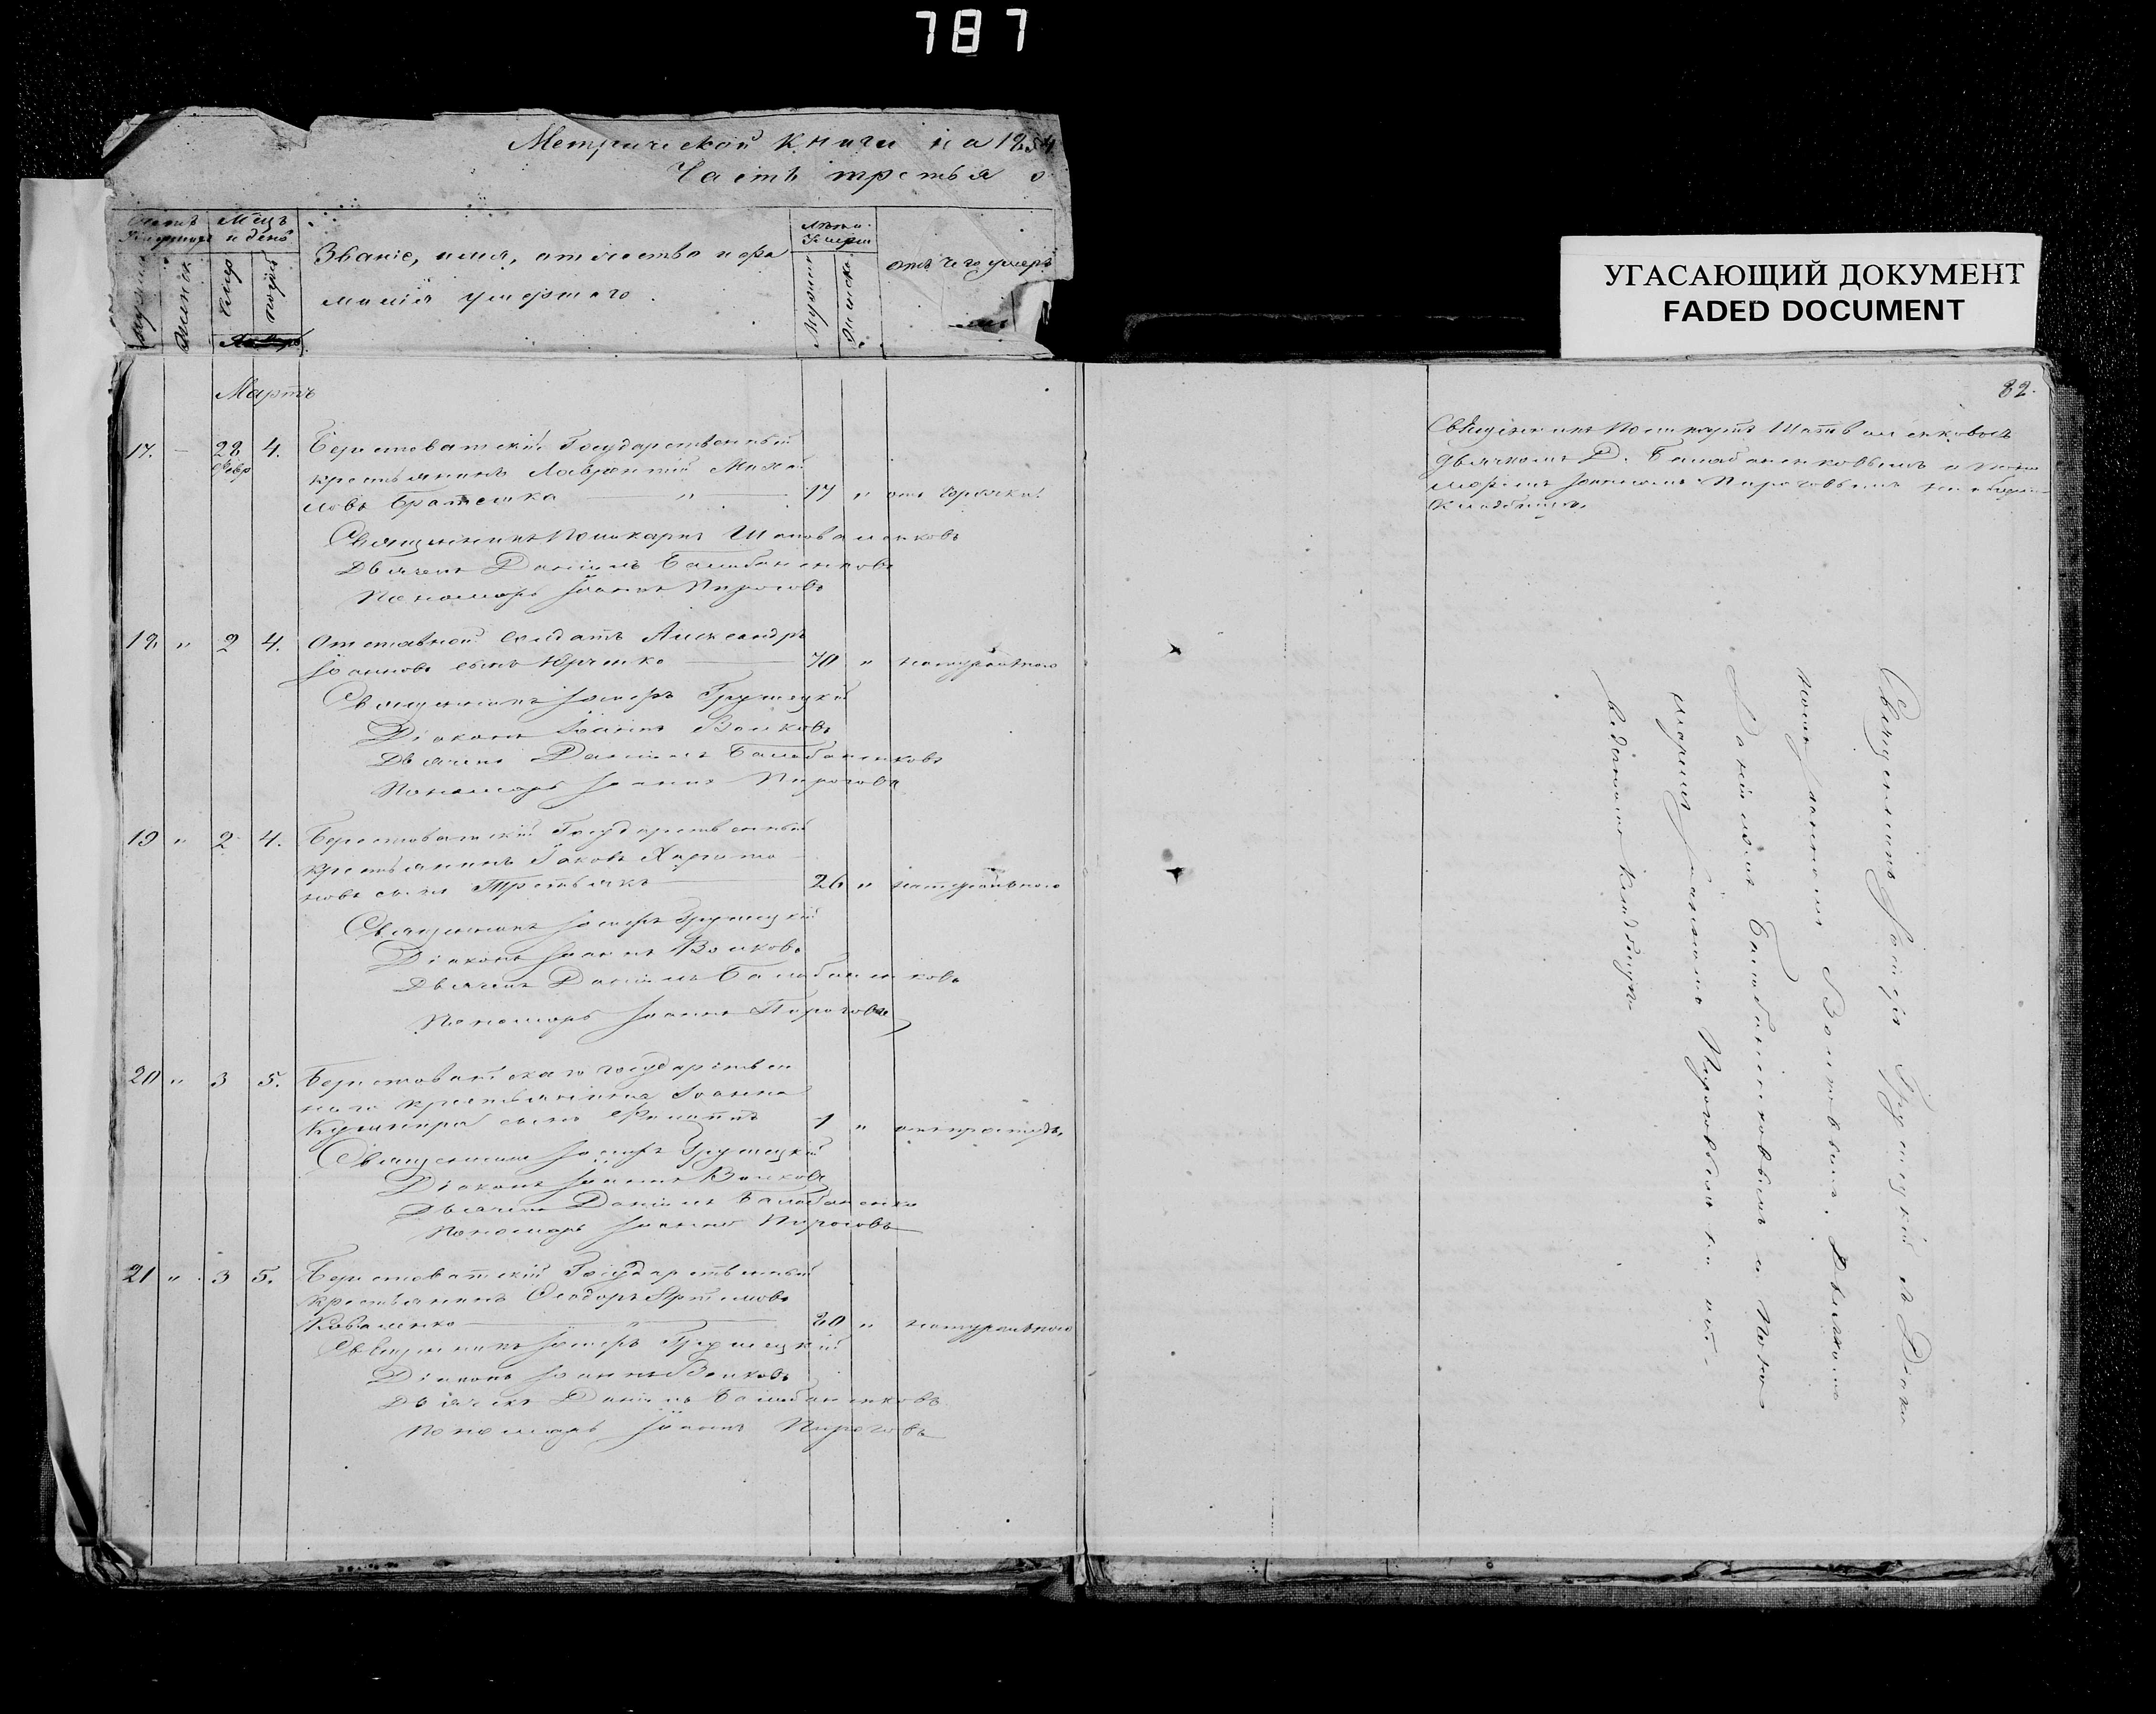 787
Метрической книги на 1854
Часть третья о
Счетъ умершихъ
Мѣцъ и день
Званіе, имя, отчество и фа
милія умершаго.
Лѣта умерш
отъ чего умеръ
Мужеск
Женск
Смер
погреб
Мужеск
Женско
УГАСАЮЩИЙ ДОКУМЕНТ
FADED DOCUMENT
82.
Мартъ
17. — 28 Февр 4. Берестоватскій Государственный
крестьянинъ Лаврентій
ловъ Братешка — " — 17 " отъ горячки
Священникъ Поликарпъ Шаповаленковъ
Дьячекъ Даніилъ Балабаненковъ
Пономарь Іоаннъ Пироговъ
18 " 2 4. Отставной солдатъ Александръ
Іоанновъ сынъ Юрченко — 70 " натуральною
Священникъ Іосифъ Грушецкій
Діаконъ Іоаннъ Волковъ
Дьячекъ Даніилъ Балабаненковъ
Пономарь Іоаннъ Пироговъ
19 " 2 4. Берестоватскій Государственный
крестьянинъ Іаковъ Харито
новъ сынъ Третьякъ — 26 " натуральною
Священникъ Іосифъ Грушецкій
Діаконъ Іоаннъ Волковъ
Дьячекъ Даніилъ Балабаненковъ
Пономарь Іоаннъ Пироговъ
20 " 3 5. Берестоватскаго государствен
наго крестьянина Іоанна
Кушнира сынъ Филиппъ 1 " отъ простуды
Священникъ Іосифъ Грушецкій
Діаконъ Іоаннъ Волковъ
Дьячекъ Даніилъ Балабаненко
Пономарь Іоаннъ Пироговъ
21 " 3 5. Берестоватскій Государственный
крестьянинъ Ѳеодоръ Артемовъ
Коваленко — " — 80 " натуральною
Священникъ Іосифъ Грушецкій
Діаконъ Іоаннъ Волковъ
Дьячекъ Даніилъ Балабаненковъ
Пономарь Іоаннъ Пироговъ
Священникъ Поликарпъ Шаповаленковъ съ
дьячкомъ Д. Балабаненковымъ и Поно
маремъ Іоанномъ Пироговымъ на общемъ
кладбищѣ.
Священникъ Іосифъ Грушецкій съ Діако
номъ Іоанномъ Волковымъ, Дьячкомъ
Даніиломъ Балабаненковымъ и Поно
маремъ Іоанномъ Пироговымъ на об-
кладбищѣ